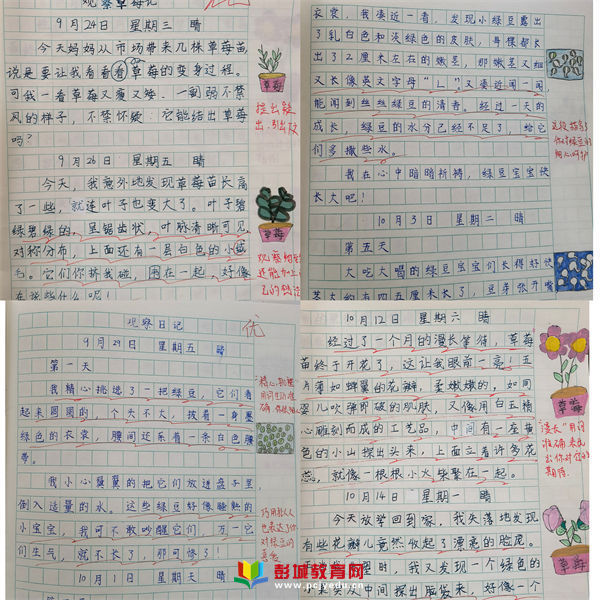 观察草莓记
9月24日 星期三 晴
今天妈妈从市场带来几株草莓苗,
说是要让我看看草莓的变身过程。
可我一看草莓又瘦又矮,一副弱不禁
风的样子,不禁怀疑:它能结出草莓
吗?
9月26日 星期五 晴
今天,我意外地发现草莓苗长高
了一些,就连叶子也变大了。叶子碧
绿碧绿的,呈锯齿状,叶脉清晰可见,
对称分布,上面还有一层白色的小绒
毛。它们你挤我碰,围在一起,好像
在说些什么呢!
草莓
草莓
衣裳,我凑近一看,发现小绿豆露出
了乳白色和淡绿色的皮肤,每棵都长
出了2厘米左右的嫩芽,那嫩芽又细
又长像英文字母“L”,又凑近闻一闻,
能闻到丝丝绿豆的清香。经过一天的
成长,绿豆的水分已经不足了,给它
们多撒些水。
我在心中暗暗祈祷,绿豆宝宝快
快长大吧!
10月3日 星期二 晴
第五天
大吃大喝的绿豆宝宝们长得好快
大约有四五厘米长了,豆芽张开嘴
观察日记
优
9月29日 星期五 晴
第一天
我精心挑选了一把绿豆,它们看
起来圆圆的,个头不大,披着一身墨
绿色的衣裳,腰间还系着一条白色腰
带。
我小心翼翼的把它们放进盘子里,
倒入适量的水。这些绿豆好像睡熟的
小宝宝,我可不敢吵醒它们,万一它
们生气,就不长了,那可惨了!
10月1日 星期天 晴
10月12日 星期六 晴
经过了一个月的漫长等待,草莓
苗终于开花了,这让我眼前一亮!五
片薄如蝉翼的花瓣,柔嫩嫩的,如同
婴儿吹弹即破的肌肤,又像用白玉精
心雕刻而成的工艺品,中间有一座黄
色的小山探出头来,上面立着许多花
蕊,就像一根根小火柴聚在一起。
10月14日 星期一 晴
今天放学回到家,我失落地发现
有些花瓣儿竟然收起了漂亮的脸庞。
时,我又发现一个绿色的
小
从中间探出脑袋来,好像一个
草莓
草莓
彭城教育网
www.pcjyedu.cn